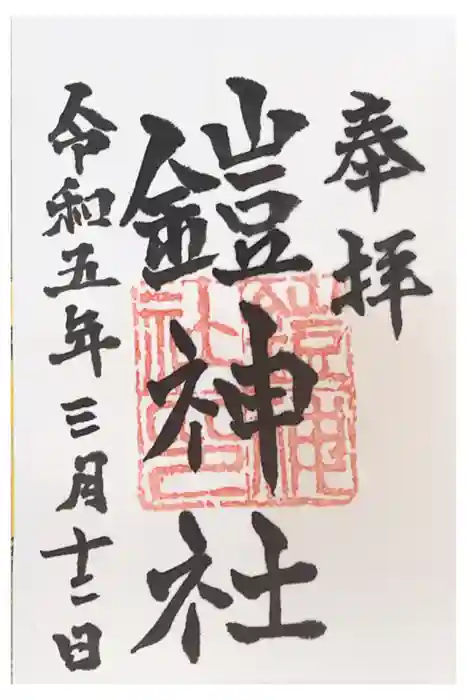 奉拝
鎧神社
令和五年三月十二日